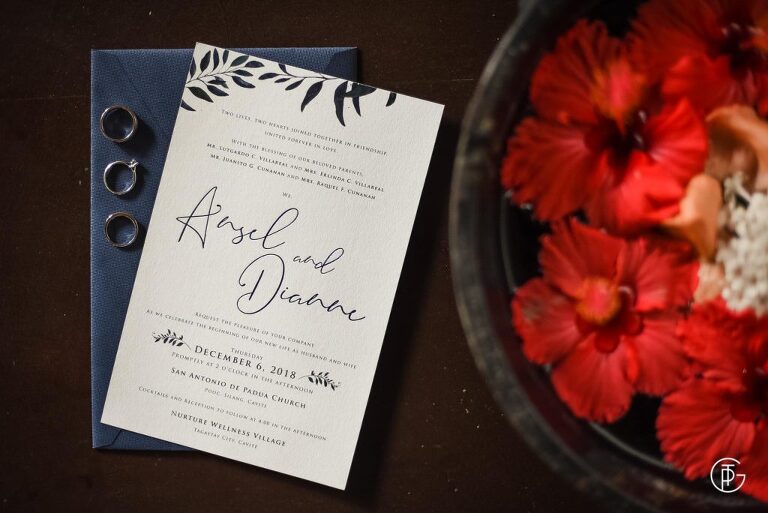 Two lives, two hearts joined together in friendship,
united forever in love.
With the blessing of our beloved parents,
Mr. Lutgardo C. Villareal and Mrs. Erlinda C. Villareal
Mr. Juanito G. Cunanan and Mrs. Raquel F. Cunanan
We,
Ansel and
Dianne
Request the pleasure of your company
As we celebrate the beginning of our new life as husband and wife
Thursday
December 6, 2018
Promptly at 2 o'clock in the afternoon
San Antonio de Padua Church
Pooc, Silang, Cavite
Cocktails and Reception to follow at 4:00 in the afternoon
Nurture Wellness Village
Tagaytay City, Cavite